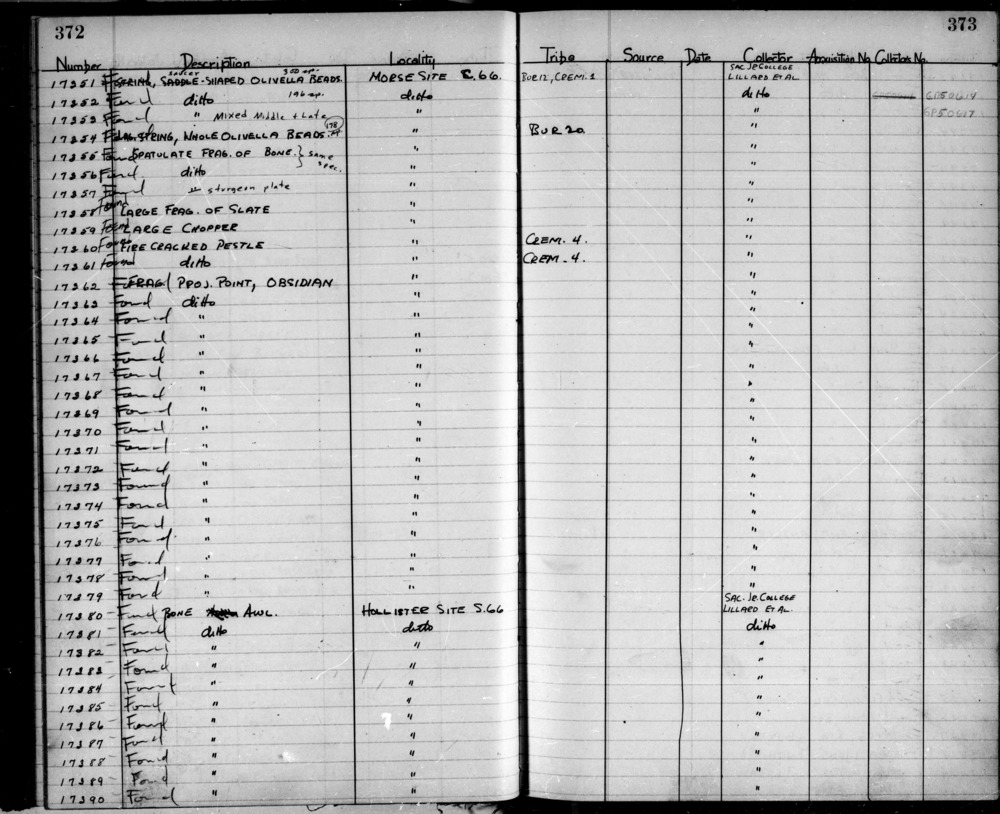 372
373
Number Description Locality Tribe Source Date Collector Acquisition No. Collectors No.
17351 Found STRING, SADDLE-SHAPED OLIVELLA BEADS. saucer MORSE SITE C.66. BUR 12, CREM. 1 SAC. JR COLLEGE LILLARD ET AL
17352 Found ditto 196 sp. ditto ditto
17353 Found " Mixed Middle + Late " "
17354 Found STRING, WHOLE OLIVELLA BEADS. 178 " BUR 20. "
17355 Found SPATULATE FRAG. OF BONE. } same spec. " "
17356 Found ditto " "
17357 Found " sturgeon plate " "
17358 Found LARGE FRAG. OF SLATE " "
17359 Found LARGE CHOPPER " "
17360 Found FIRE CRACKED PESTLE " CREM. 4. "
17361 Found ditto " CREM. 4. "
17362 FRAG. PROJ. POINT, OBSIDIAN " "
17363 Found ditto " "
17364 Found " " "
17365 Found " " "
17366 Found " " "
17367 Found " " "
17368 Found " " "
17369 Found " " "
17370 Found " " "
17371 Found " " "
17372 Found " " "
17373 Found " " "
17374 Found " " "
17375 Found " " "
17376 Found " " "
17377 Found " " "
17378 Found " " "
17379 Found " " "
17380 Found BONE AWL. HOLLISTER SITE S.66 SAC. JR. COLLEGE LILLARD ET AL.
17381 Found ditto ditto ditto
17382 Found " " "
17383 Found " " "
17384 Found " " "
17385 Found " " "
17386 Found " " "
17387 Found " " "
17388 Found " " "
17389 Found " " "
17390 Found " " "